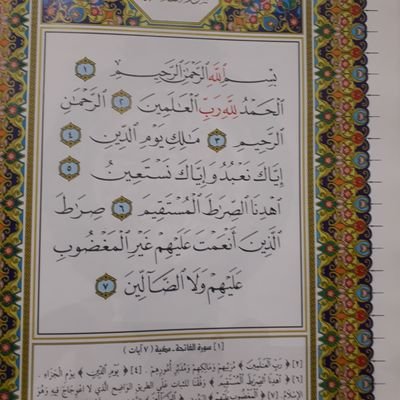 بِسْمِ اللَّهِ الرَّحْمَٰنِ الرَّحِيمِ ١
الْحَمْدُ لِلَّهِ رَبِّ الْعَالَمِينَ ٢ الرَّحْمَٰنِ
الرَّحِيمِ ٣ مَالِكِ يَوْمِ الدِّينِ ٤
إِيَّاكَ نَعْبُدُ وَإِيَّاكَ نَسْتَعِينُ ٥
اهْدِنَا الصِّرَاطَ الْمُسْتَقِيمَ ٦ صِرَاطَ
الَّذِينَ أَنْعَمْتَ عَلَيْهِمْ غَيْرِ الْمَغْضُوبِ
عَلَيْهِمْ وَلَا الضَّالِّينَ ٧
[١] سورة الفاتحة - مكية (٧ آيات)
[٢] ﴿رَبِّ الْعَالَمِينَ﴾ مُرَبِّيهِمْ وَمَالِكِهِمْ وَمُدَبِّرِ أُمُورِهِمْ. [٤] ﴿يَوْمِ الدِّينِ﴾ يَوْمِ الْجَزَاءِ.
[٦] ﴿اهْدِنَا الصِّرَاطَ الْمُسْتَقِيمَ﴾ وَفِّقْنَا لِلثَّبَاتِ عَلَى الطَّرِيقِ الْوَاضِحِ الَّذِي لَا اعْوِجَاجَ فِيهِ وَهُوَ
الْإِسْلَامُ. [٧] ﴿الْمَغْضُوبِ عَلَيْهِمْ﴾